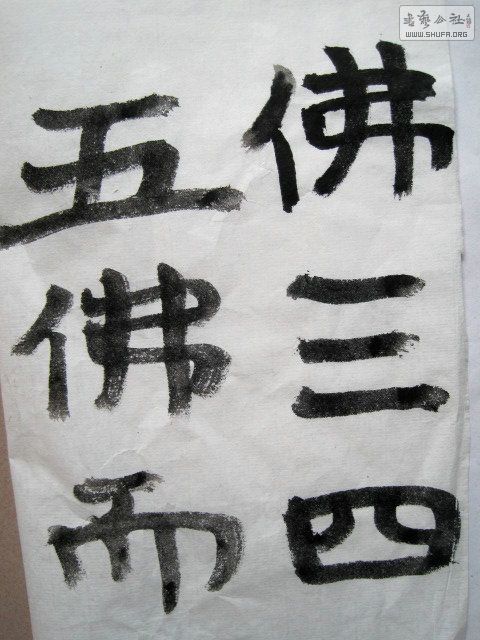 佛三四
五佛而
書藝公社
WWW.SHUFA.ORG